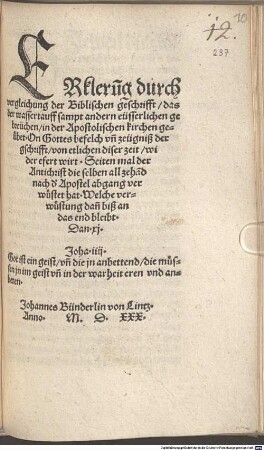 10
12.
237
ERklerũg durch
vergleichung der Biblischen geschrifft/das
der wassertauff sampt andern eüsserlichen ge
breüchen/in der Apostolischen kirchen ge-
übet. On Gottes befelch vñ zeügniß der
gschrifft/von etlichen diser zeit/wi
der efert wirt. Seiten mal der
Antichrist die selben all zehãd
nach d̓ Apostel abgang ver
wüstet hat. Welche ver-
wüstung dañ biß an
das end bleibt.
Dan. xj.
Joha. iiij.
Got ist ein geist/vñ die jn anbettend/die müs-
sen jn im geist vñ in der warheit eren vnd an-
betten.
Johannes Bünderlin von Lintz.
Anno. M. D. XXX.